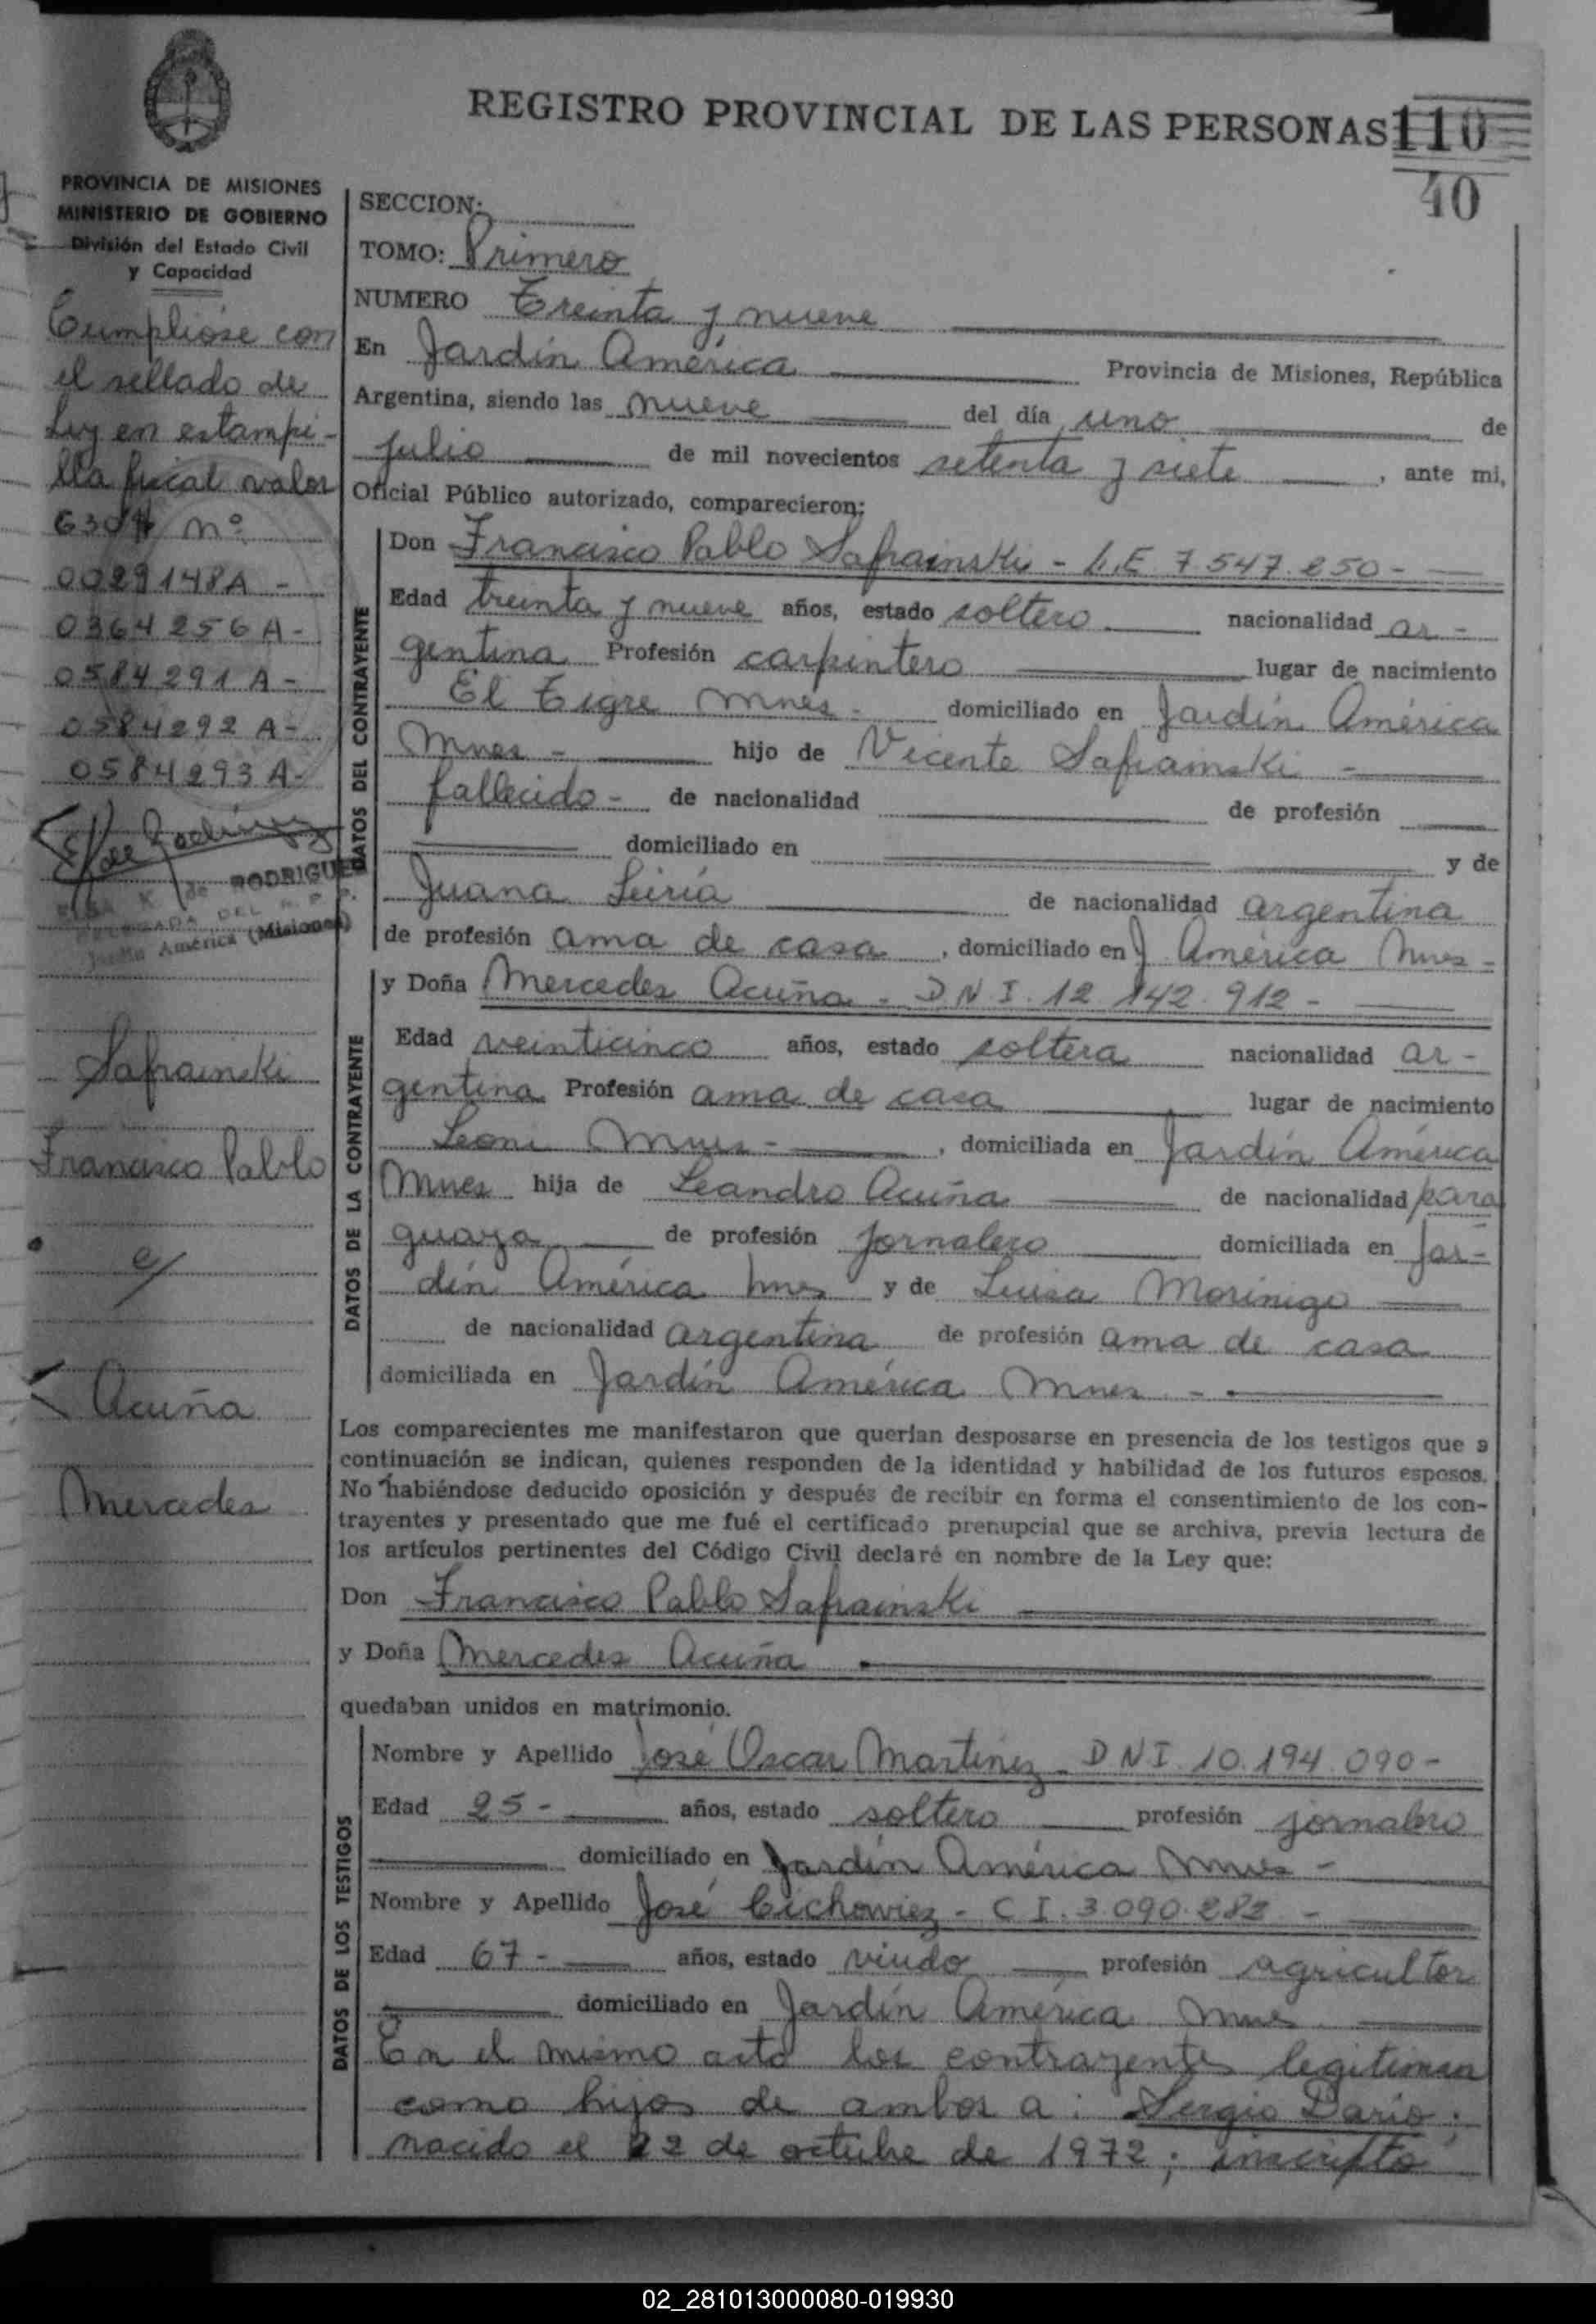 REGISTRO PROVINCIAL DE LAS PERSONAS
110
40
PROVINCIA DE MISIONES
MINISTERIO DE GOBIERNO
División del Estado Civil
y Capacidad
Cumplióse con
el sellado de
Ley en estampi-
lla fiscal valor
630$ nº
0029148A -
0364256A -
0584291A -
0584292A -
0584293A -
K. de RODRIGUEZ
DELEGADA DEL R. P. P.
Jardín América (Misiones)
Safrainski
Francisco Pablo
c/
Acuña
Mercedes
SECCION:
TOMO: Primero
NUMERO Treinta y nueve
En Jardín América Provincia de Misiones, República
Argentina, siendo las nueve del día uno de
julio de mil novecientos setenta y siete, ante mi,
Oficial Público autorizado, comparecieron:
DATOS DEL CONTRAYENTE
Don Francisco Pablo Safrainski - L.E 7.547.250 -
Edad treinta y nueve años, estado soltero nacionalidad ar-
gentina Profesión carpintero lugar de nacimiento
El Tigre Mnes - domiciliado en Jardín América
Mnes - hijo de Vicente Safrainski -
fallecido - de nacionalidad de profesión
domiciliado en y de
Juana Leiria de nacionalidad argentina
de profesión ama de casa, domiciliado en J. América Mnes -
DATOS DE LA CONTRAYENTE
y Doña Mercedes Acuña - D N I. 12.142.912 -
Edad veinticinco años, estado soltera nacionalidad ar-
gentina Profesión ama de casa lugar de nacimiento
Leoni Mnes -, domiciliada en Jardín América
Mnes hija de Leandro Acuña de nacionalidad para
guaya de profesión jornalero domiciliada en Jar-
dín América Mnes y de Luisa Morinigo
de nacionalidad argentina de profesión ama de casa
domiciliada en Jardín América Mnes -
Los comparecientes me manifestaron que querían desposarse en presencia de los testigos que a
continuación se indican, quienes responden de la identidad y habilidad de los futuros esposos.
No habiéndose deducido oposición y después de recibir en forma el consentimiento de los con-
trayentes y presentado que me fué el certificado prenupcial que se archiva, previa lectura de
los artículos pertinentes del Código Civil declaré en nombre de la Ley que:
Don Francisco Pablo Safrainski
y Doña Mercedes Acuña
quedaban unidos en matrimonio.
DATOS DE LOS TESTIGOS
Nombre y Apellido José Oscar Martinez - D N I. 10.194.090 -
Edad 25 - años, estado soltero profesión jornalero
domiciliado en Jardín América Mnes -
Nombre y Apellido José Cichowiez - C I. 3.090.282 -
Edad 67 - años, estado viudo profesión agricultor
domiciliado en Jardín América Mnes
En el mismo acto los contrayentes legitiman
como hijos de ambos a: Sergio Dario;
nacido el 22 de octubre de 1972; inscripto
02_281013000080-019930